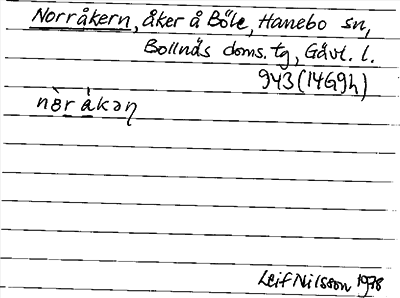 Norråkern, åker å Böle, Hanebo sn,
Bollnäs doms. tg, Gävl. l.
943 (14G9h)
nòrákəṇ
Leif Nilsson 1978